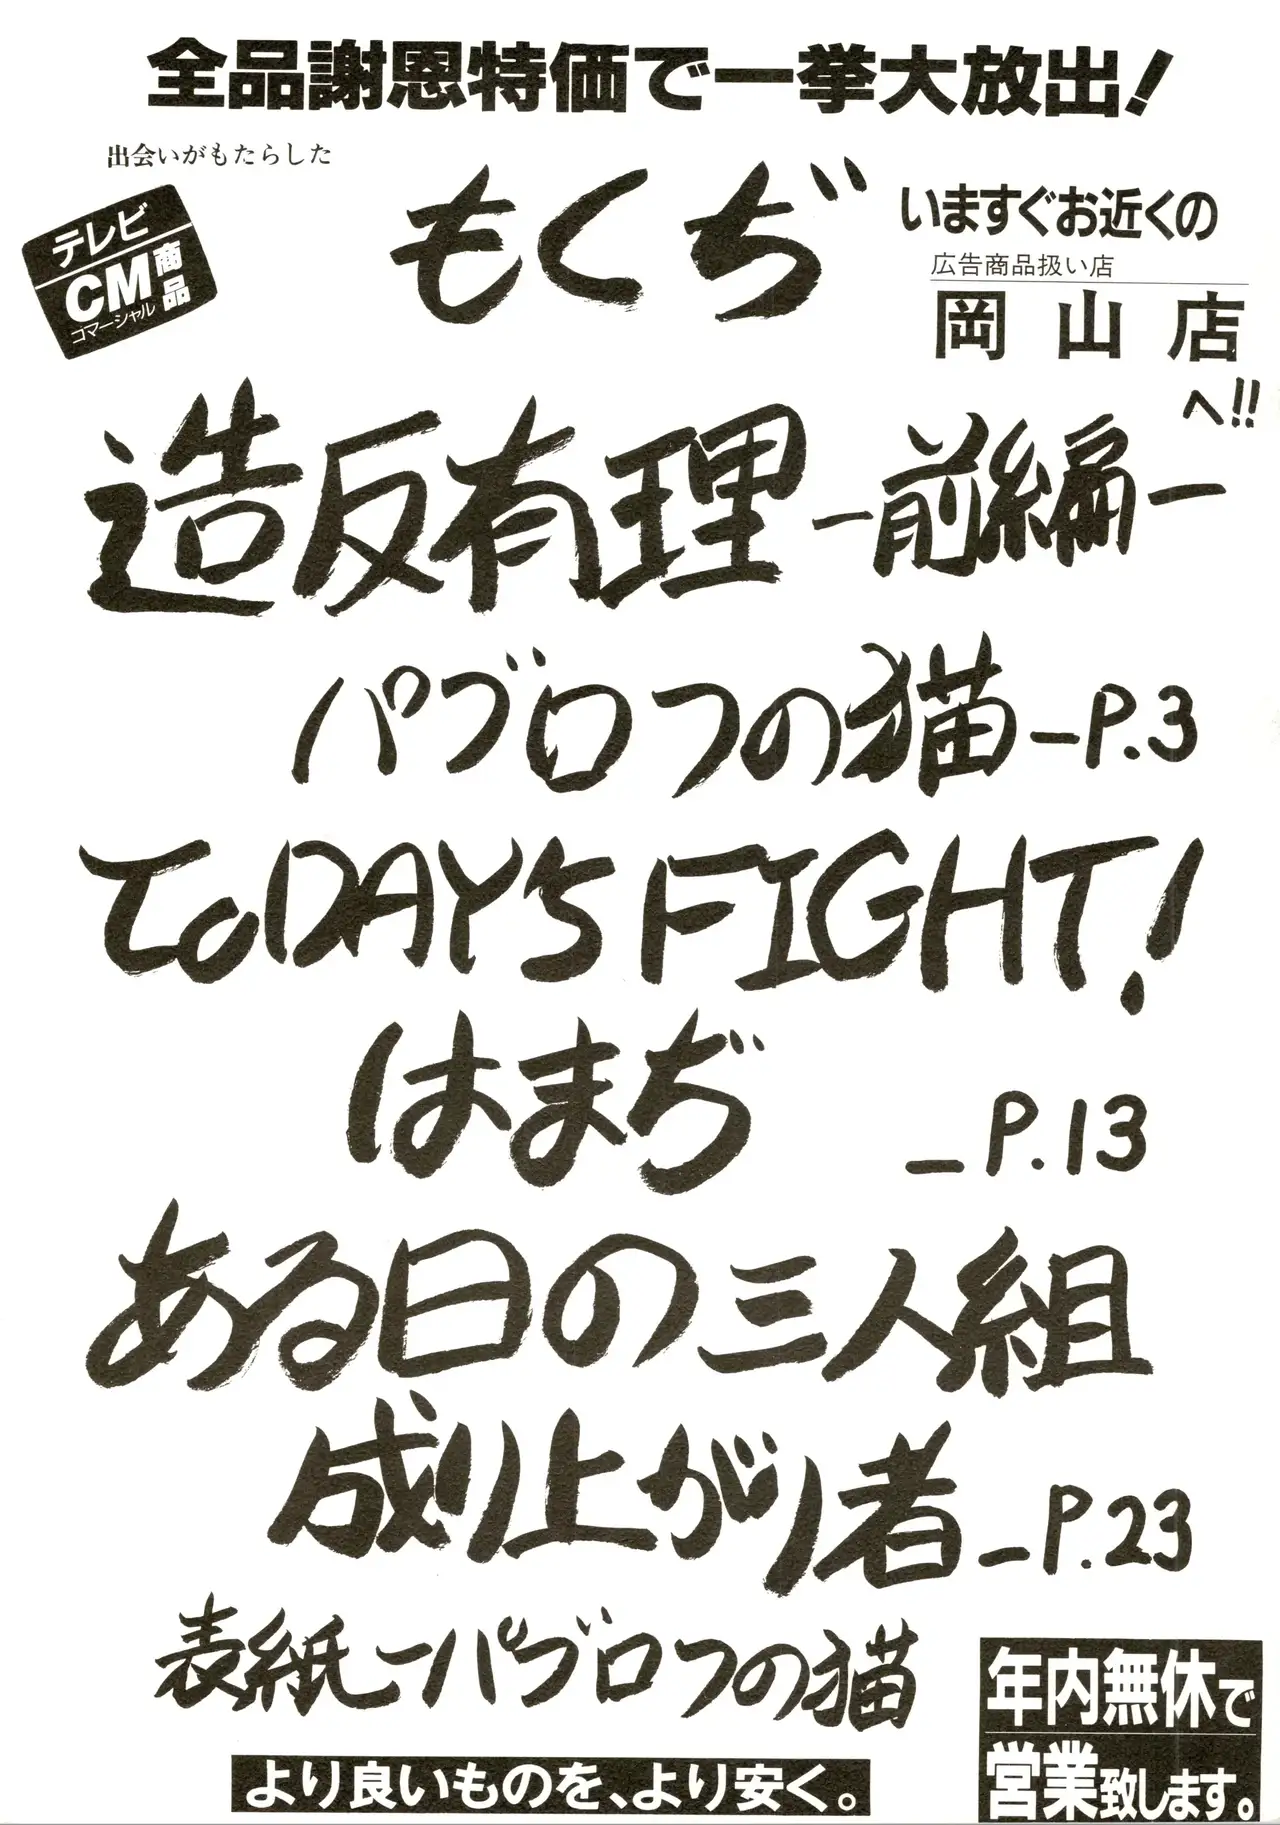 全品謝恩特価で一挙大放出!
出会いがもたらした
テレビ
CM商品
コマーシャル
もくぢ
いますぐお近くの
広告商品扱い店
岡山店
へ!!
造反有理ー前編ー
パブロフの猫 ーP.3
ToDAY'S FIGHT!
はまぢ ーP.13
ある日の三人組
成り上がり者 ーP.23
表紙ーパブロフの猫
年内無休で
営業致します。
より良いものを、より安く。